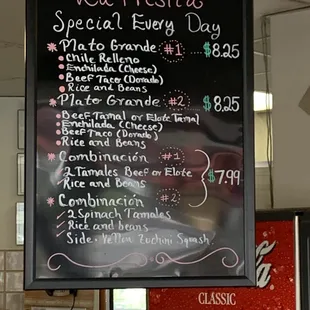 Special Every Day
* Plato Grande #1 $8.25
• Chile Relleno
• Enchilada (Cheese)
• Beef Taco (Dorado)
• Rice and Beans
* Plato Grande #2 $8.25
• Beef Tamal or Elote Tamal
• Enchilada (Cheese)
• Beef Taco (Dorado)
• Rice and Beans
* Combinación #1
2 Tamales Beef or Elote
Rice and Beans
$7.99
* Combinación #2
✓ 2 Spinach Tamales
✓ Rice and beans
✓ Side. Yellow Zuchini Squash
CLASSIC